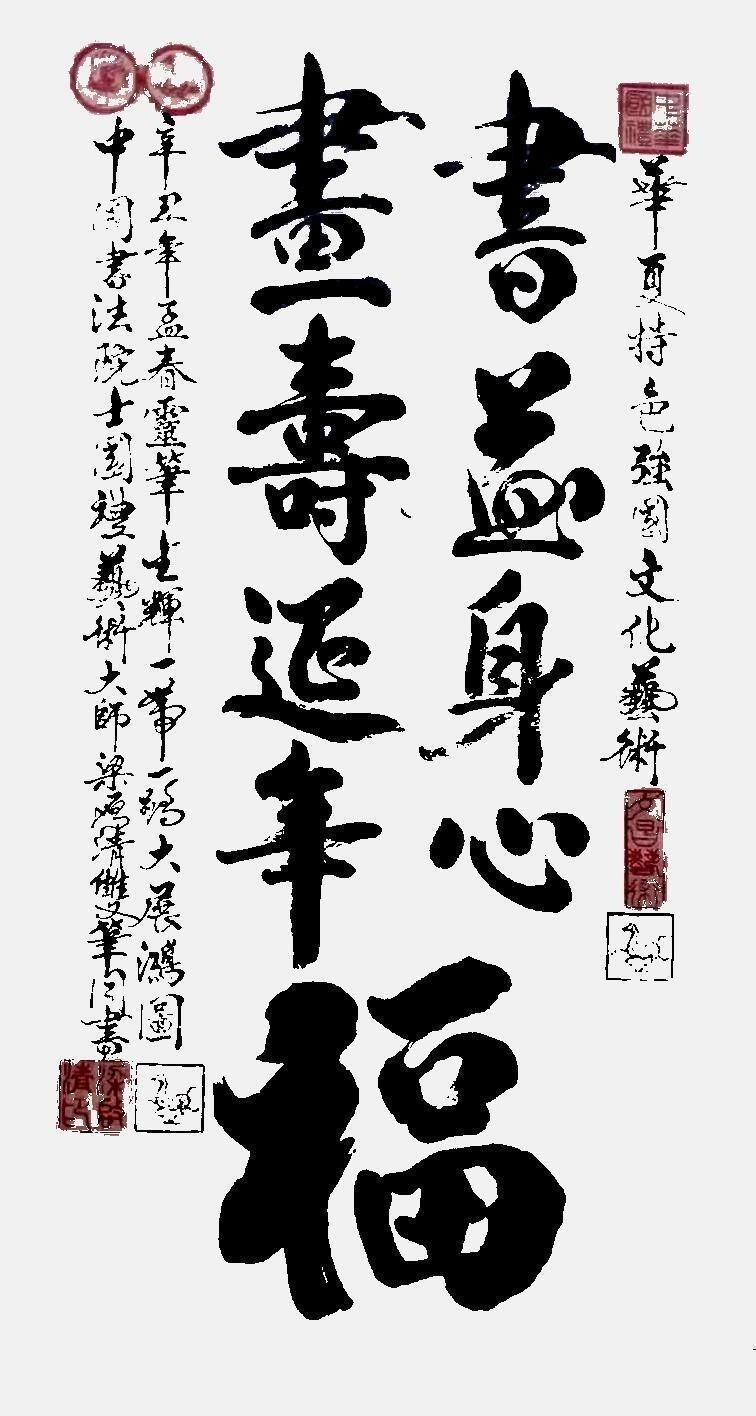 中華國禮
華夏特色強國文化藝術
書益身心
畫壽延年
福
辛丑年孟春靈筆生輝一帶一路大展鴻圖
中國書法院士國禮藝術大師梁清雙筆同書